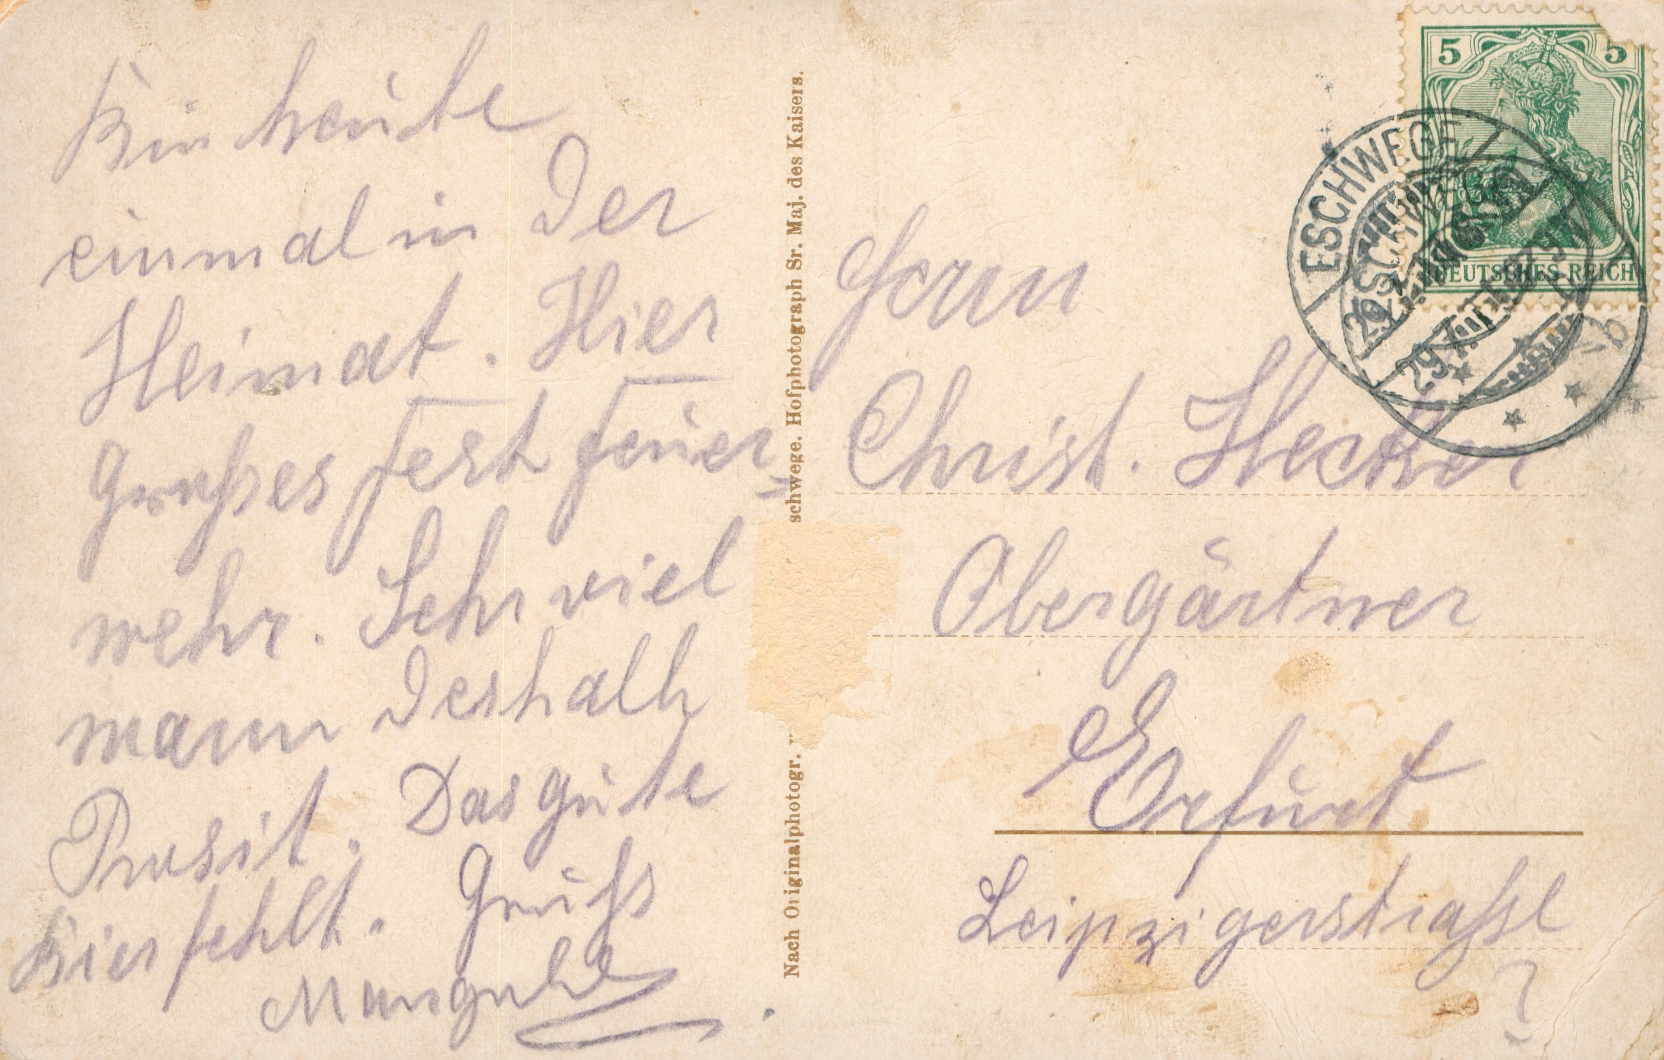 Bin heute
einmal in der
Heimat. Hier
großes Fest Feuer=
wehr. Sehr viel
mann deshalb
Prosit. Das gute
Bier fehlt. Gruß
Nach Originalphotogr.
schwege. Hofphotograph Sr. Maj. des Kaisers.
5 5
DEUTSCHES REICH
ESCHWEGE
ESCHWEGE
Herrn
Christ. Hecker
Obergärtner
Erfurt.
Leipzigerstraße
?